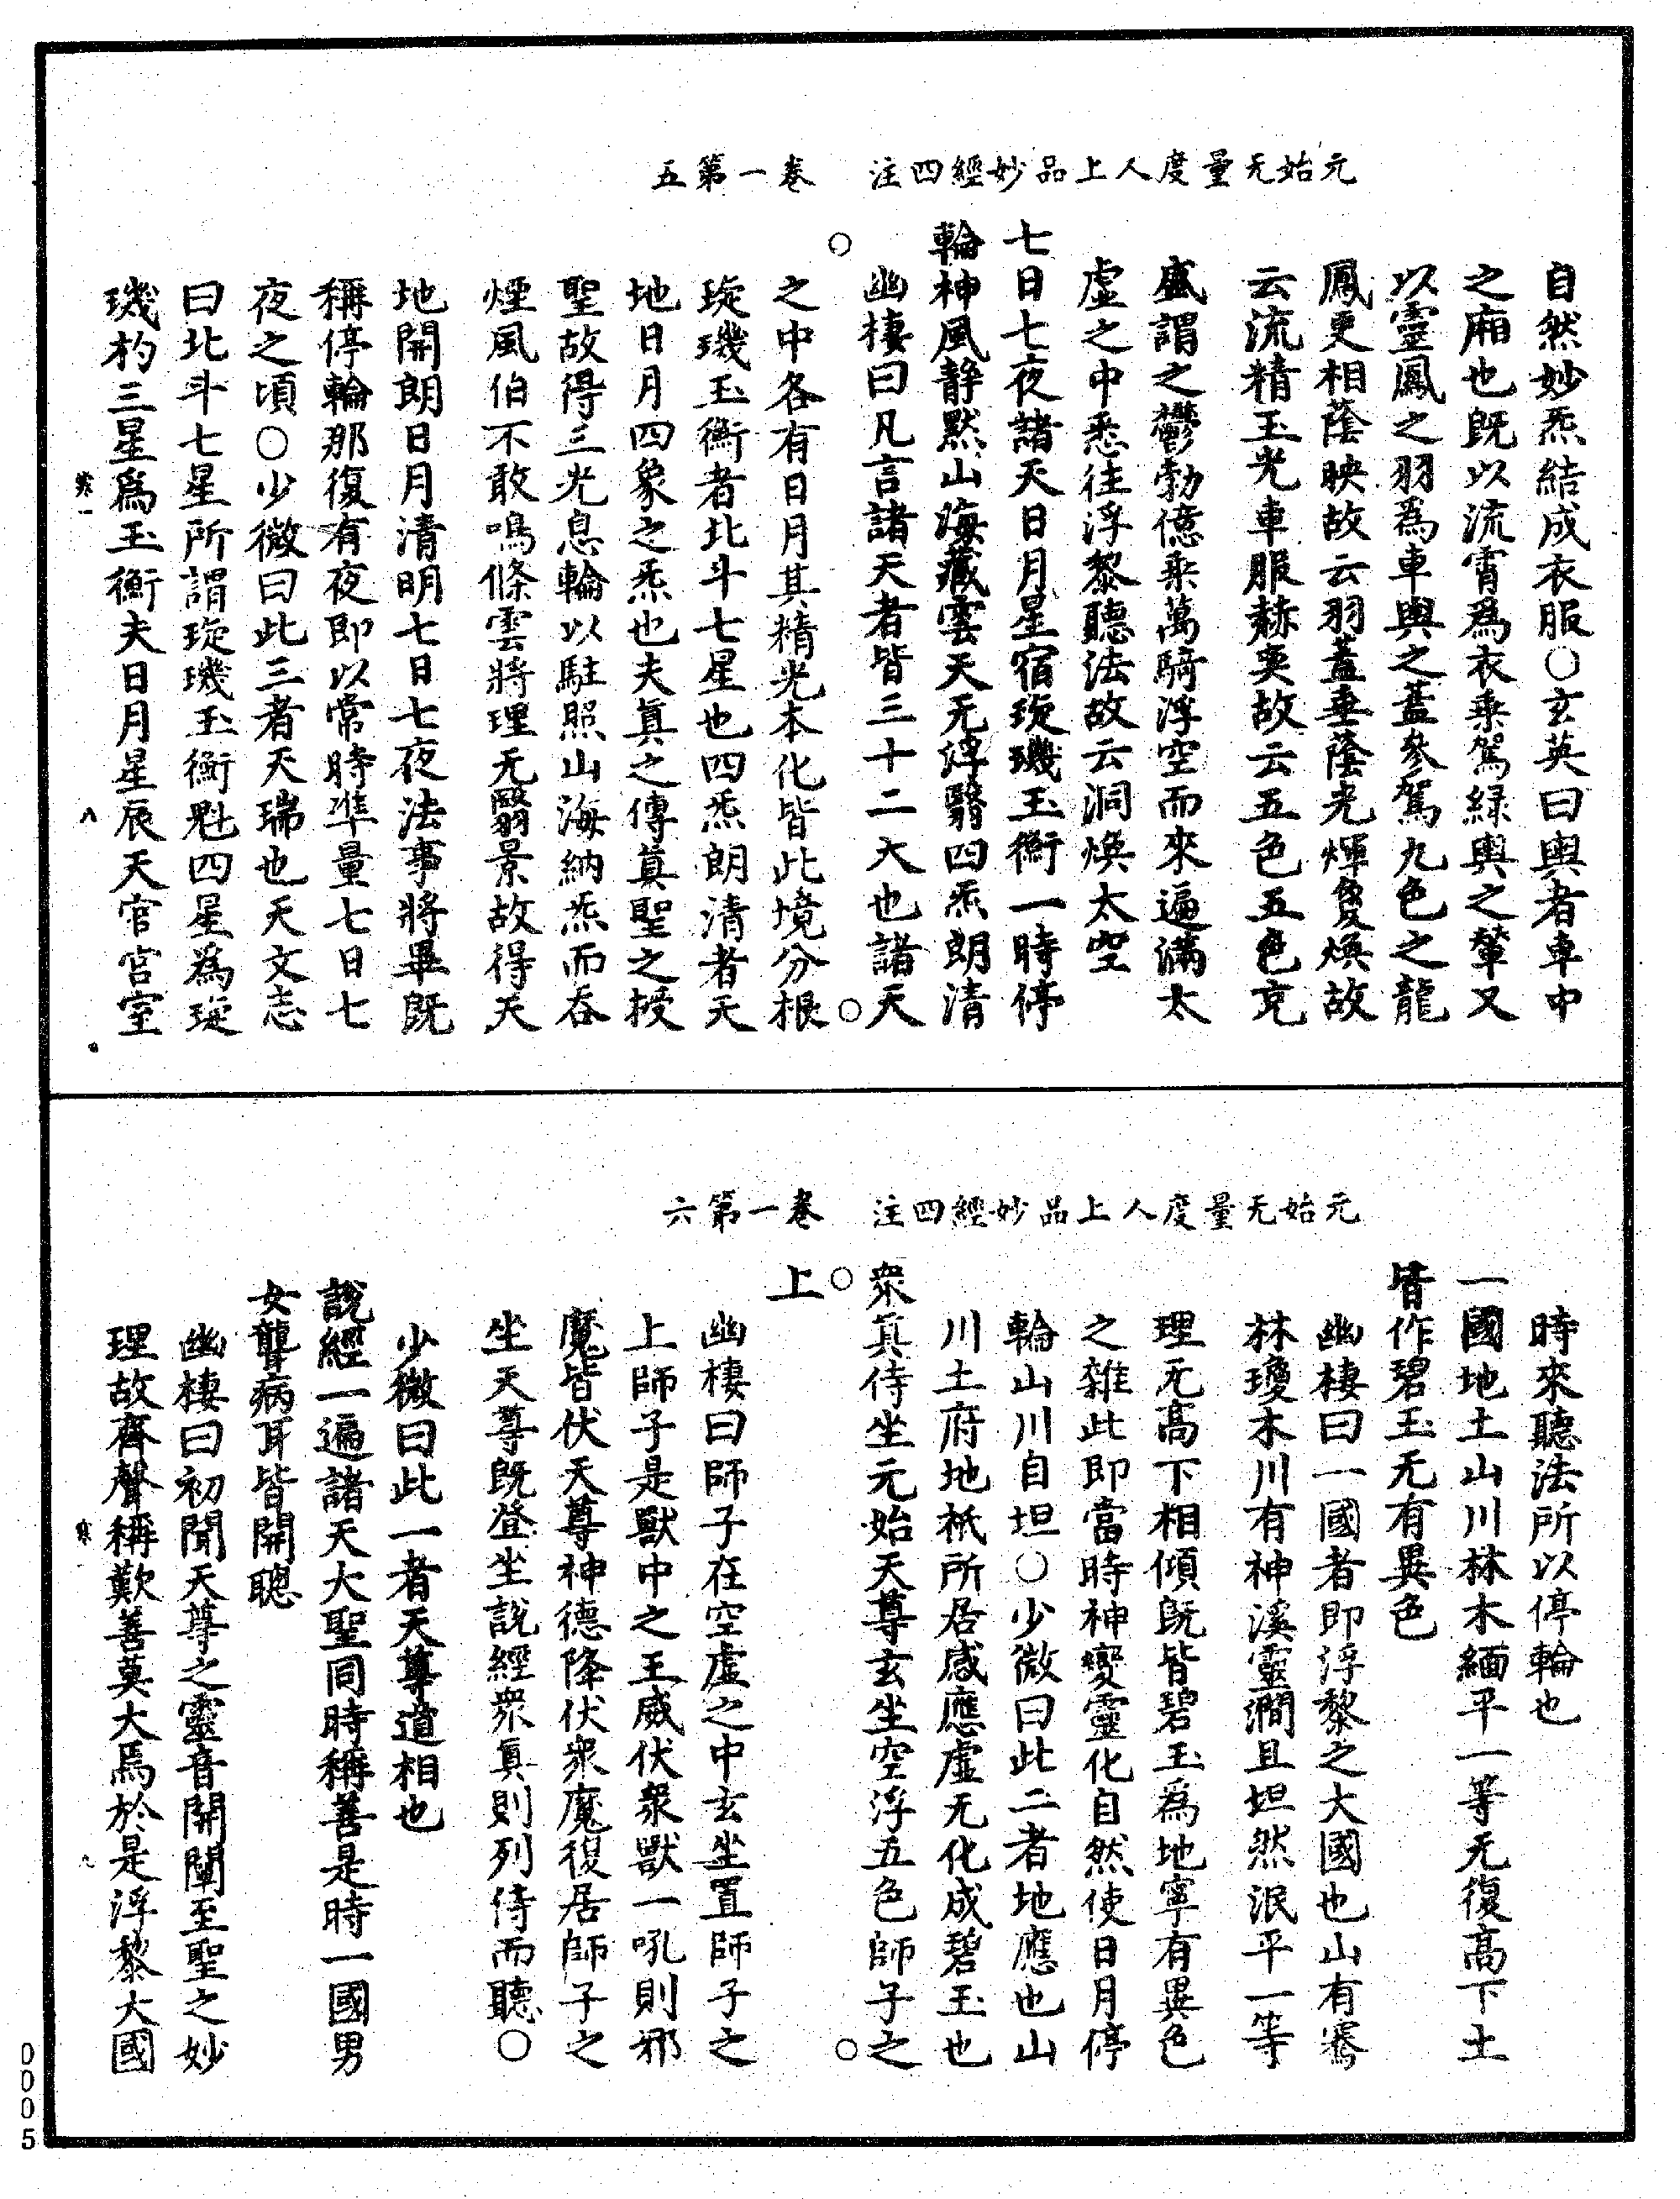 元始无量度人上品妙經四注　卷一第五
自然妙炁結成衣服○玄英曰輿者車中
之廂也既以流霄爲衣乘駕緑輿之輦又
以靈鳳之羽爲車輿之蓋參駕九色之龍
鳳更相蔭映故云羽蓋垂蔭光煇敻煥故
云流精玉光車服赫奕故云五色五色亢
盛謂之鬱勃億乘萬騎浮空而來遍滿太
虛之中悉往浮黎聽法故云洞煥太空
七日七夜諸天日月星宿琁璣玉衡一時停
輪神風靜默山海藏雲天无浮翳四炁朗清
幽棲曰凡言諸天者皆三十二天也諸天
之中各有日月其精光本化皆此境分根
琁璣玉衡者北斗七星也四炁朗清者天
地日月四象之炁也夫真之傳真聖之授
聖故得三光息輪以駐照山海納炁而吞
煙風伯不敢鳴條雲將理无翳景故得天
地開朗日月清明七日七夜法事將畢既
稱停輪那復有夜即以常時準量七日七
夜之頃○少微曰此三者天瑞也天文志
曰北斗七星所謂琁璣玉衡魁四星爲琁
璣杓三星爲玉衡夫日月星辰天官宫室
寒一　八
元始无量度人上品妙經四注　卷一第六
時來聽法所以停輪也
一國地土山川林木緬平一等无復高下土
皆作碧玉无有異色
幽棲曰一國者即浮黎之大國也山有騫
林瓊木川有神溪靈澗且坦然泯平一等
理无高下相傾既皆碧玉爲地寧有異色
之雜此即當時神變靈化自然使日月停
輪山川自坦○少微曰此二者地應也山
川土府地祇所居感應虛无化成碧玉也
衆真侍坐元始天尊玄坐空浮五色師子之
上
幽棲曰師子在空虛之中玄坐置師子之
上師子是獸中之王威伏衆獸一吼則邪
魔皆伏天尊神德降伏衆魔復居師子之
坐天尊既登坐說經衆真則列侍而聽○
少微曰此一者天尊道相也
說經一遍諸天大聖同時稱善是時一國男
女聾病耳皆開聰
幽棲曰初聞天尊之靈音開闡至聖之妙
理故齊聲稱歎善莫大焉於是浮黎大國
寒一　九
0005